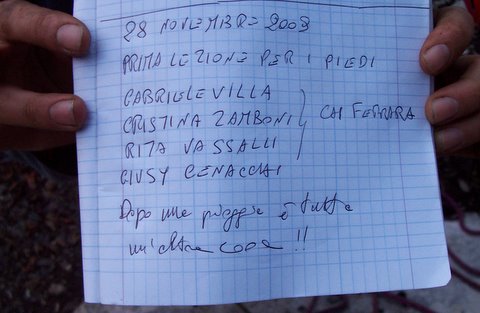 28 NOVEMBRE 2009
PRIMA LEZIONE PER I PIEDI
GABRIELE VILLA
CRISTINA ZAMBONI
CAI FERRARA
RITA VASSALLI
GIUSY CENACCHI
Dopo una pioggia è tutta
un'altra cosa!!